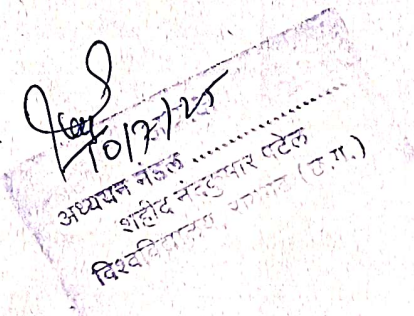 10/7/25
अध्ययन मंडल ..................
शहीद नंदकुमार पटेल
विश्वविद्यालय, (छ.ग.)